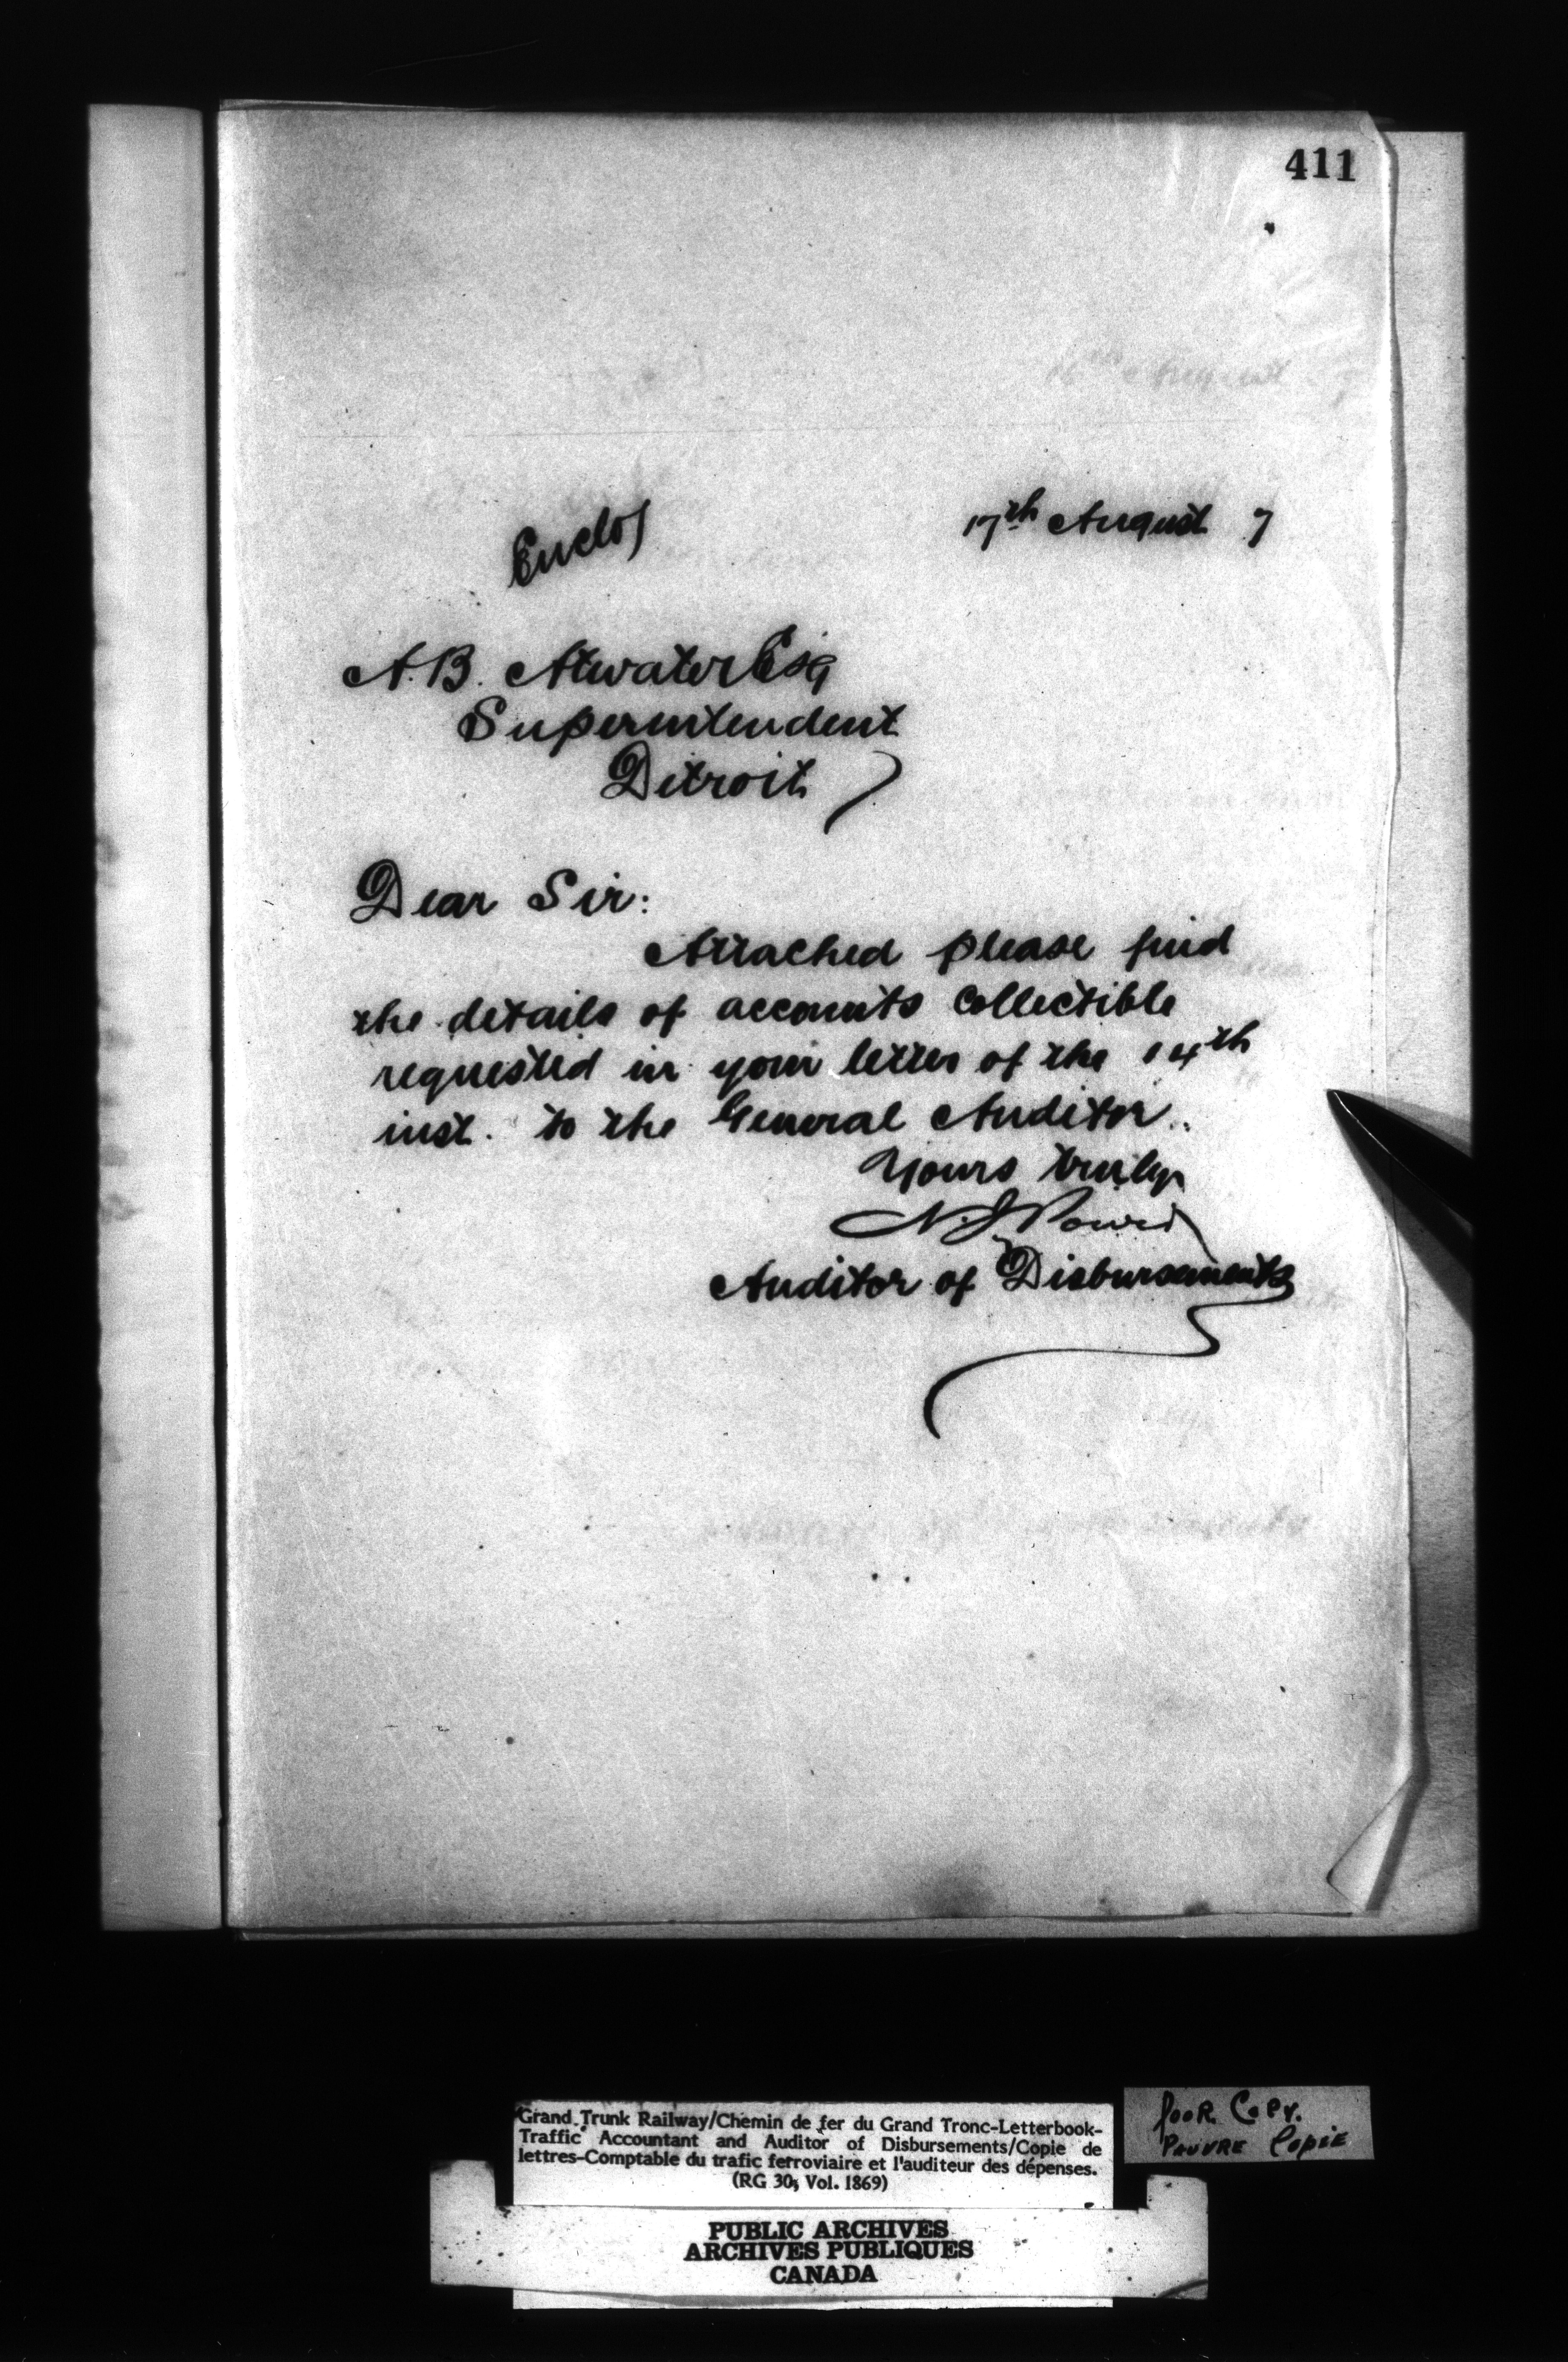 411
17th August 7
Enclos
A.B. Atwater Esq
Superintendent
Detroit
Dear Sir:
Attached please find
the details of accounts collectible
requested in your letter of the 14th
inst. to the General Auditor.
Yours truly
N. J. Power
Auditor of Disbursements
Grand Trunk Railway/Chemin de fer du Grand Tronc-Letterbook-
Traffic Accountant and Auditor of Disbursements/Copie de
lettres-Comptable du trafic ferroviaire et l'auditeur des dépenses.
(RG 30, Vol. 1869)
POOR COPY.
PAUVRE COPIE
PUBLIC ARCHIVES
ARCHIVES PUBLIQUES
CANADA